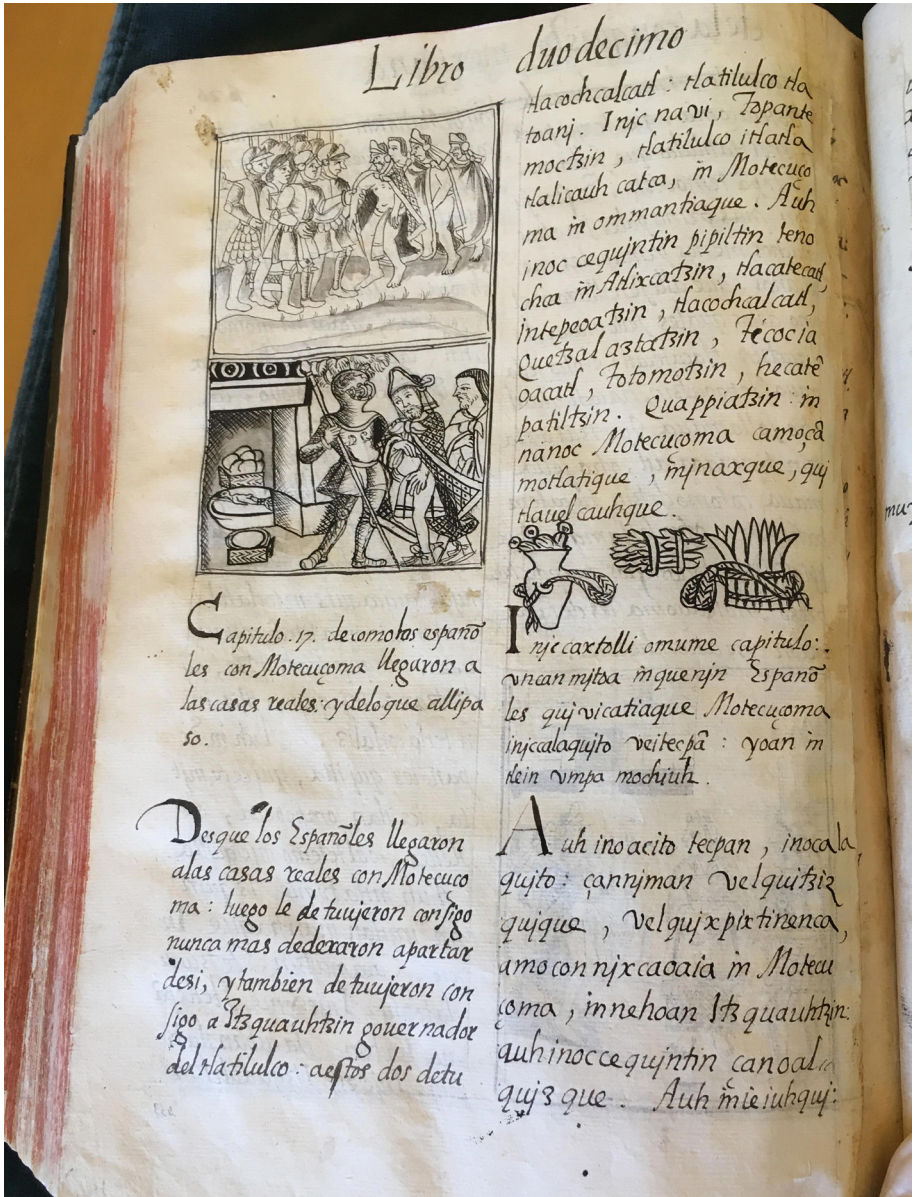 Libro duodecimo
Capitulo .17. de como los españo
les con Motecuçoma llegaron a
las casas reales: y delo que alli pa
so.
Desque los Españoles llegaron
alas casas reales con Motecuco
ma: luego le detuujeron consigo
nunca mas dedexaron apartar
desi, y tambien detuujeron con
sigo a Itzquauhtzin gouernador
del tlatilulco: aestos dos detu
tlacochcalcatl: tlatilulco tla
toanj. Injc navi, Topante
moctzin, tlatilulco itlatla
tlalicauh catca, in Motecuço
ma in ommantiaque. Auh
inoc cequintin pipiltin teno
chca in Atlixcatzin, tlacatecatl,
intepeoatzin, tlacochcalcatl,
Quetzalaztatzin, Tecocia
oacatl, Totomotzin, hecatē
patiltzin. Quappiatzin: in
nanoc Motecuçoma camoçā
motlatique, mjnaxque, qui
tlauelcauhque.
Injc caxtolli omume capitulo:
vncan mjtoa inquenjn Españo
les qujvicatiaque Motecuçoma
injccalaqujto veitecpā: yoan in
tlein vmpa mochiuh.
Auh inoacito tecpan, inocala
qujto: çannjman velquitziz
quique, velqujxpixtinenca,
amo connjxcaoaia in Motecu
çoma, innehoan Itzquauhtzin:
auhinoccequjntin çanoal
qujzque. Auh in ie iuhquj: